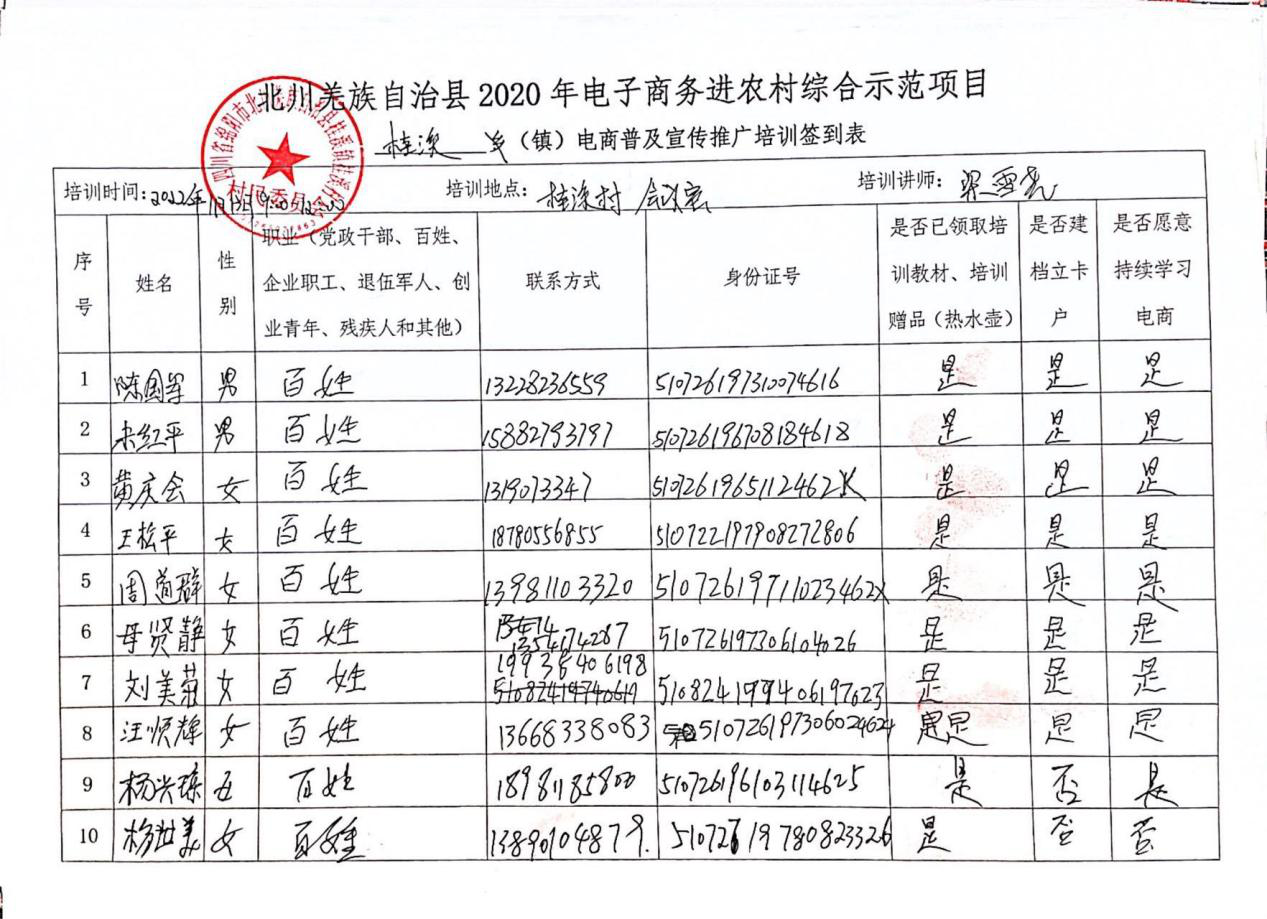 北川羌族自治县2020年电子商务进农村综合示范项目
桂溪 乡（镇）电商普及宣传推广培训签到表
培训时间：2022年 培训地点：桂溪村 会议室 培训讲师：梁
序号 姓名 性别 职业（党政干部、百姓、企业职工、退伍军人、创业青年、残疾人和其他） 联系方式 身份证号 是否已领取培训教材、培训赠品（热水壶） 是否建档立卡户 是否愿意持续学习电商
1 陈国军 男 百姓 13228236559 510726197310074616 是 是 是
2 红平 男 百姓 15882793797 510726196708184618 是 是 是
3 黄庆会 女 百姓 1319073347 5107261965112462X 是 是 是
4 王松平 女 百姓 18780556855 510722197908272806 是 是 是
5 周道群 女 百姓 13981103320 51072619711023462X 是 是 是
6 母贤静 女 百姓 13547174287 510726197306104026 是 是 是
7 刘美菊 女 百姓 19935406198 是 是 是
8 汪顺辉 女 百姓 13668338083 510726197306024624 是 是 是
9 杨兴琼 女 百姓 18981185800 510726196103114625 是 否 是
10 杨世美 女 百姓 13890104879. 51072619780823326 是 否 否